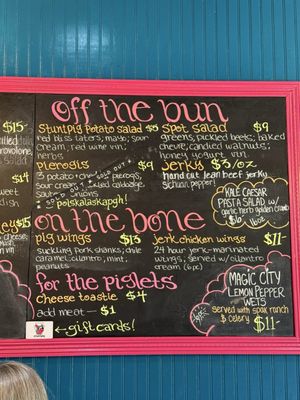 off the bun
$15
Stuntpig Potato Salad $5
red bliss taters, mayo, sour
cream, red wine vin,
herbs
Spot Salad $9
greens, pickled beets, baked
chevre, candied walnuts,
honey yogurt vin
provolone
$14
Pierogis $9
3 potato
pierogis,
sour cream
cabbage,
onions
polskalaskapgh!
Jerky $3/oz
hand cut lean beef jerky,
sichuan pepper
KALE CAESAR
PASTA SALAD w/
garlic herb golden crumb
on the bone
$15
pig wings $13
suckling pork shanks, chile
caramel, cilantro, mint,
peanuts
Jerk chicken wings $11
24 hour jerk-marinated
wings, served w/ cilantro
cream (6pc)
for the piglets
Cheese toastie $4
add meat — $1
← gift cards!
MAGIC CITY
LEMON PEPPER
WETS
served with spak ranch
& celery $11